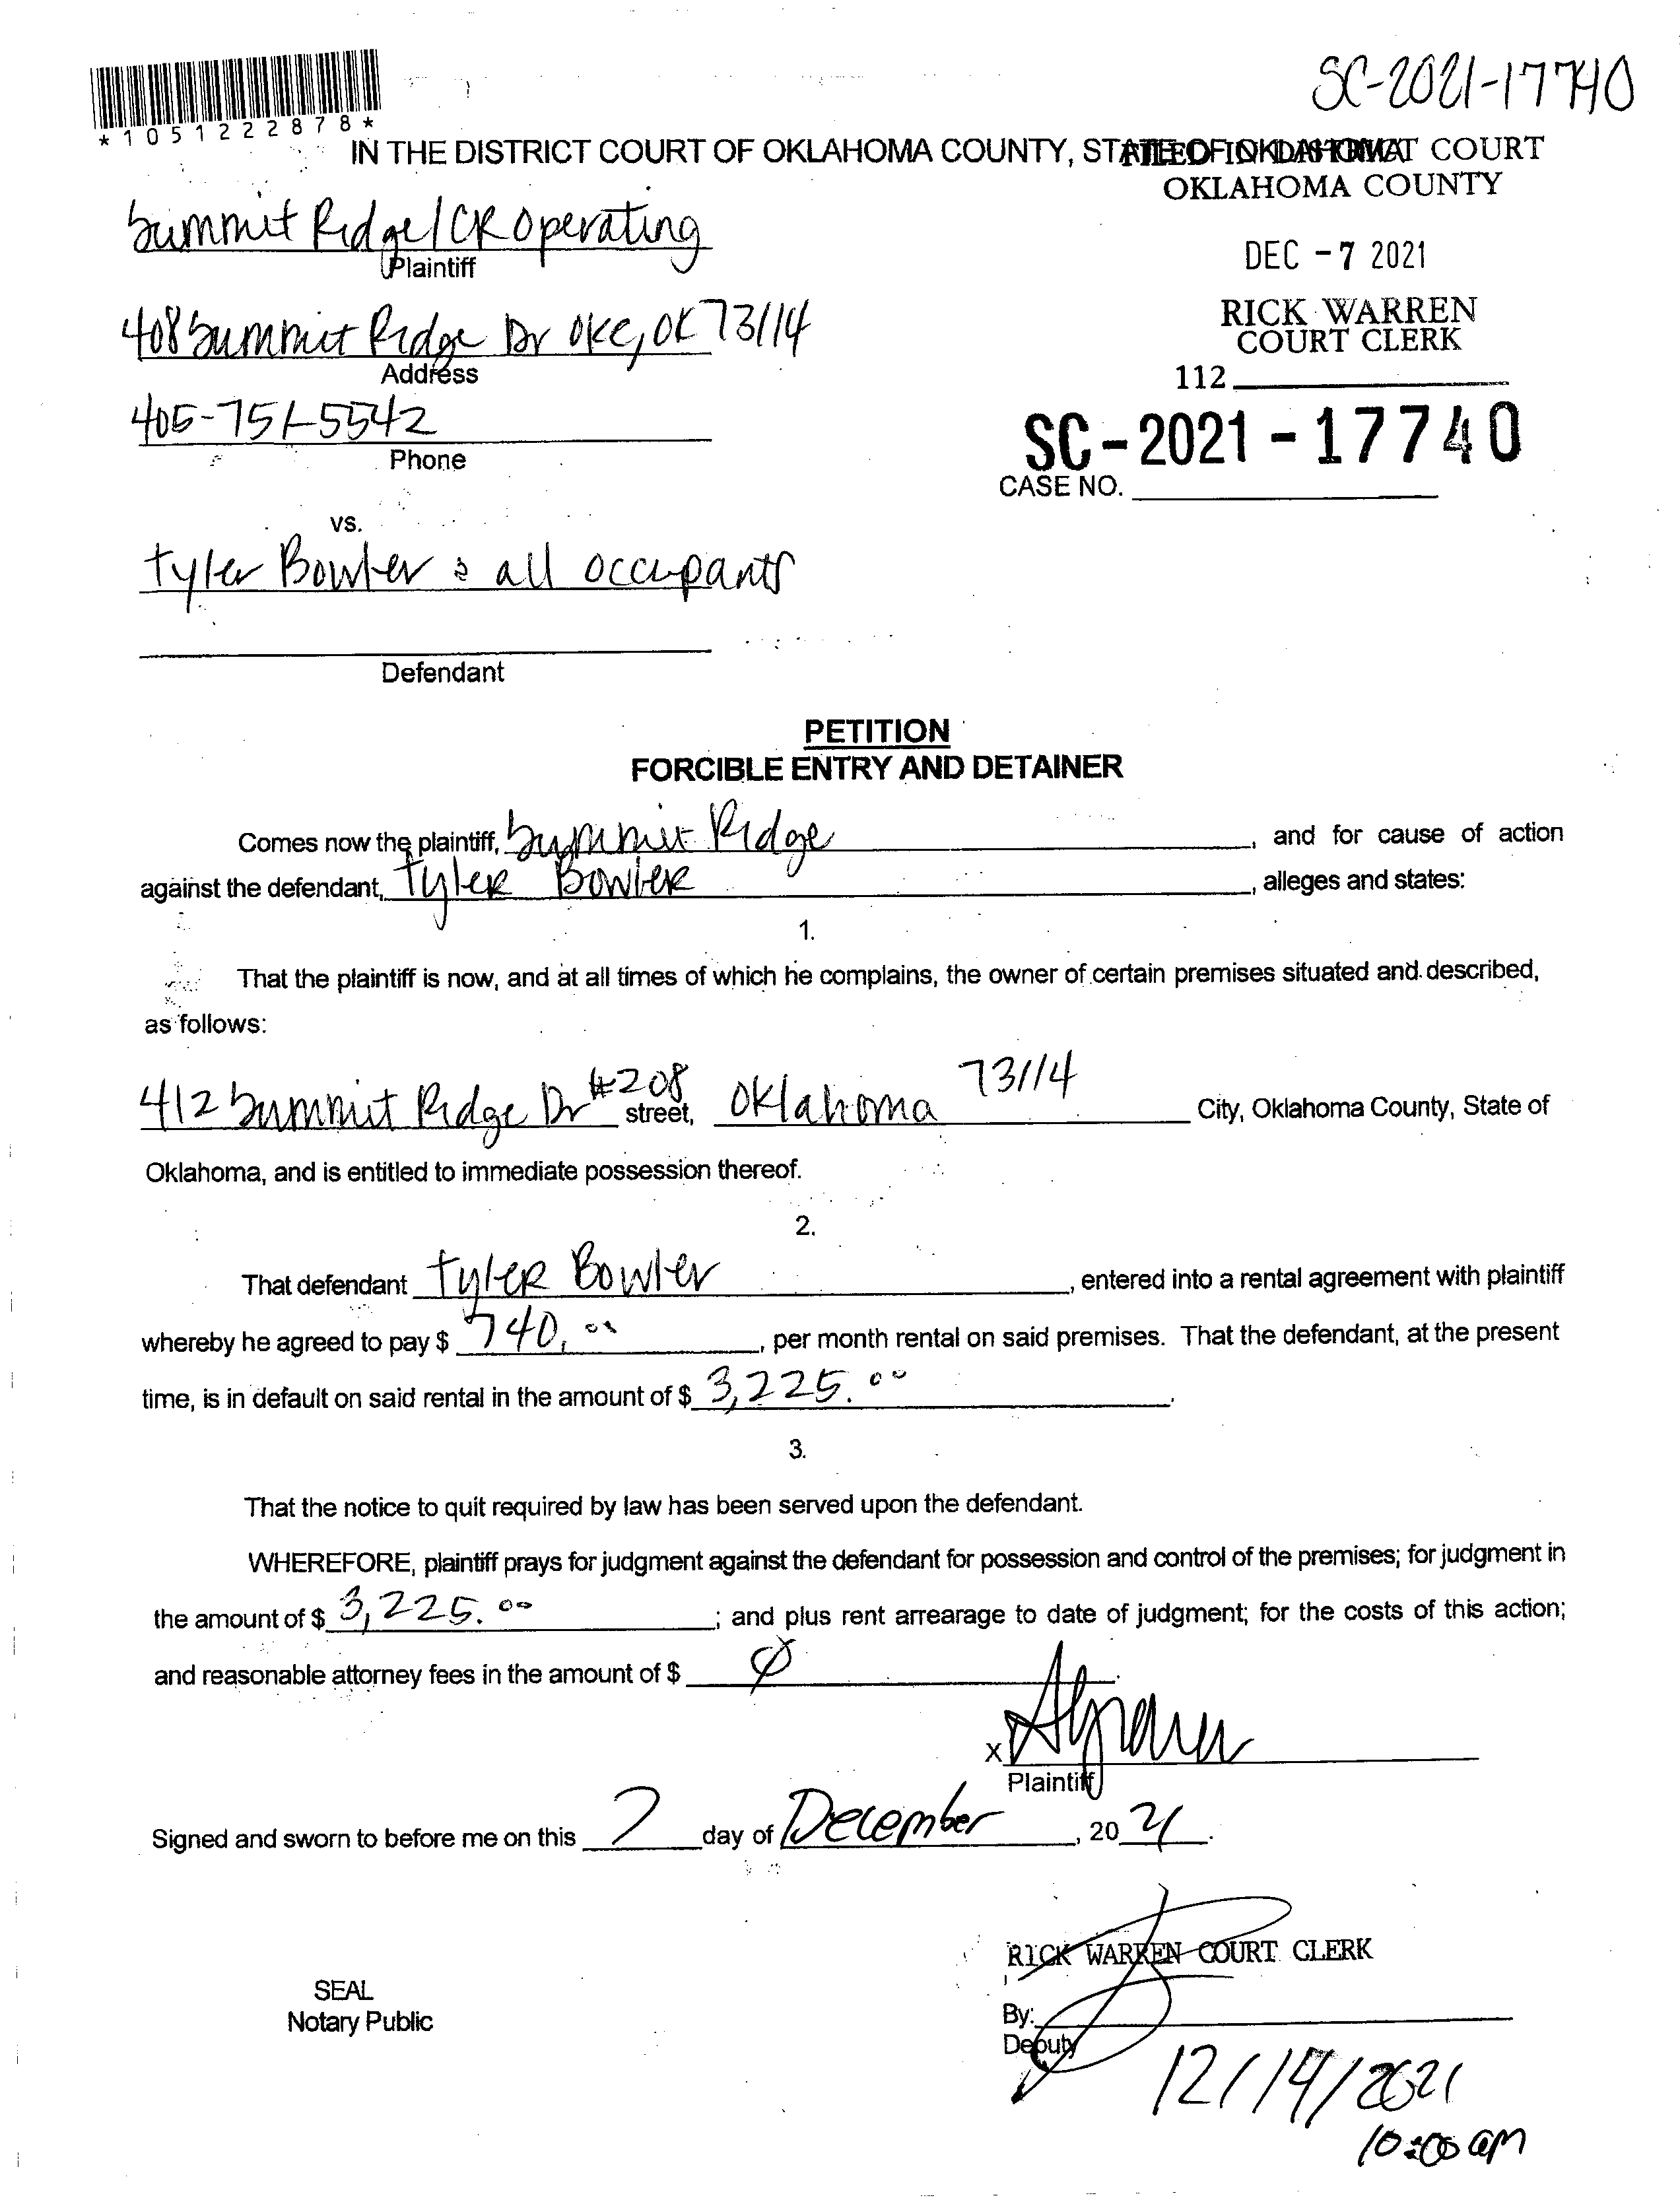 SC-2021-17740
*1051222878*
IN THE DISTRICT COURT OF OKLAHOMA COUNTY, STATE OF OKLAHOMA
FILED IN DISTRICT COURT
OKLAHOMA COUNTY
Summit Ridge/CR Operating
Plaintiff
DEC -7 2021
408 Summit Ridge Dr OKC, OK 73114
Address
RICK WARREN
COURT CLERK
112
405-751-5542
Phone
SC-2021-17740
CASE NO.
vs.
Tyler Bowler & all occupants
Defendant
PETITION
FORCIBLE ENTRY AND DETAINER
Comes now the plaintiff, Summit Ridge, and for cause of action
against the defendant, Tyler Bowler, alleges and states:
1.
That the plaintiff is now, and at all times of which he complains, the owner of certain premises situated and described,
as follows:
412 Summit Ridge Dr #208 street, Oklahoma 73114 City, Oklahoma County, State of
Oklahoma, and is entitled to immediate possession thereof.
2.
That defendant Tyler Bowler, entered into a rental agreement with plaintiff
whereby he agreed to pay $ 740.00, per month rental on said premises. That the defendant, at the present
time, is in default on said rental in the amount of $ 3,225.00.
3.
That the notice to quit required by law has been served upon the defendant.
WHEREFORE, plaintiff prays for judgment against the defendant for possession and control of the premises; for judgment in
the amount of $ 3,225.00; and plus rent arrearage to date of judgment; for the costs of this action;
and reasonable attorney fees in the amount of $ Ø.
X
Plaintiff
Signed and sworn to before me on this 7 day of December, 2021.
RICK WARREN COURT CLERK
SEAL
Notary Public
By:
Deputy
12/14/2021
10:00 am